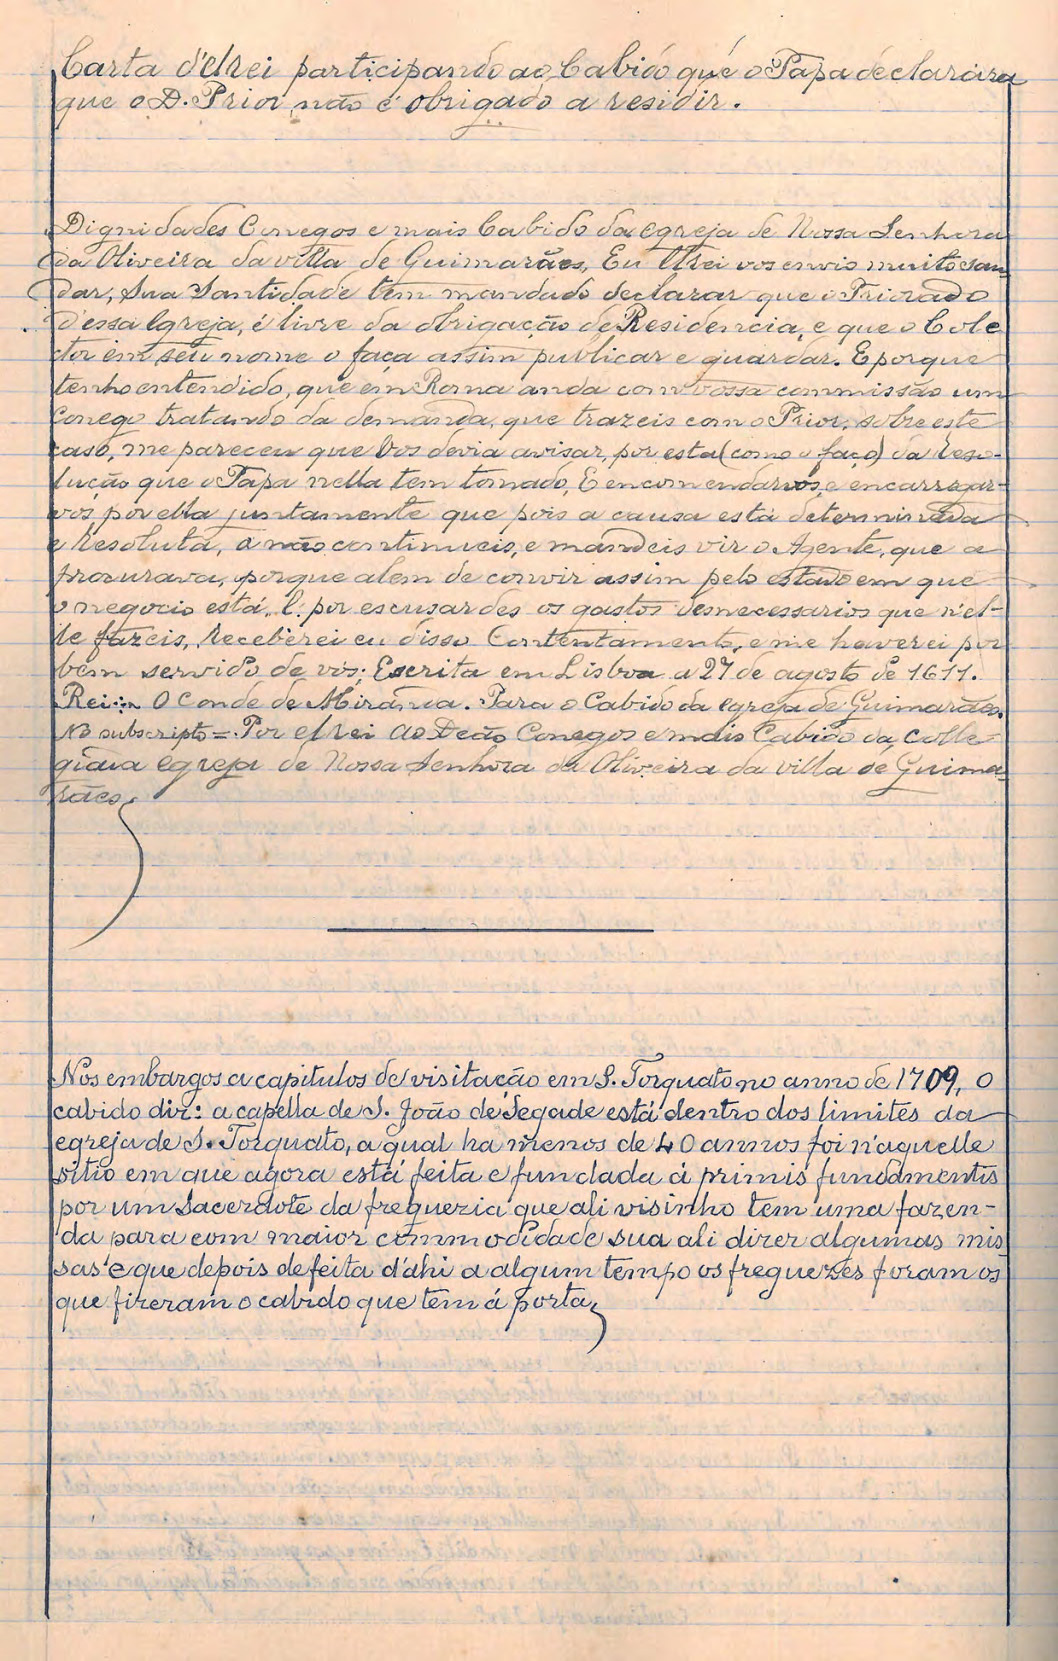 Carta d'elrei participando ao Cabido que o Papa declarára
que o D. Prior não é obrigado a residir.
Dignidades Conegos e mais Cabido da egreja de Nossa Senhora
da Oliveira da villa de Guimarães, Eu Elrei vos envio muito sau-
dar, Sua Santidade tem mandado declarar que o Priorado
d'essa Igreja, é livre da obrigação de Residencia, e que o Cole
tor em seu nome o faça assim publicar e guardar. E porque
tenho entendido, que em Roma anda com vossa commissão um
Conego tratando da demanda, que trazeis com o Prior, sobre este
caso, me pareceu que vos devia avisar, por esta (como o faço) da reso-
lução que o Papa nella tem tomado, E encomendarvos, e encarregar-
vos por ella juntamente que pois a causa está determinada
e resoluta, a não continueis, e mandeis vir o Agente, que a
procurava, porque alem de convir assim pelo estado em que
o negocio está, e por escusardes os gastos desnecessarios que n'el-
le fazeis, receberei eu disso Contentamento, e me haverei por
bem servido de vós; Escrita em Lisboa a 27 de agosto de 1611.
Rei:: O Conde de Miranda. Para o Cabido da egreja de Guimarães.
No subscripto = Por elrei ao Deão Conegos e mais Cabido da Colle-
giada egreja de Nossa Senhora da Oliveira da villa de Guima-
rães.
Nos embargos a capitulos de visitação em S. Torquato no anno de 1709, o
cabido diz: a capella de S. João de Segade está dentro dos limites da
egreja de S. Torquato, a qual ha menos de 40 annos foi n'aquelle
sitio em que agora está feita e fundada á primis fundamentis
por um Sacerdote da freguezia que ali visinho tem uma fazen-
da para com maior commodidade sua ali dizer algumas mis
sas e que depois de feita d'ahi a algum tempo os freguezes foram os
que fizeram o cabido que tem á porta,